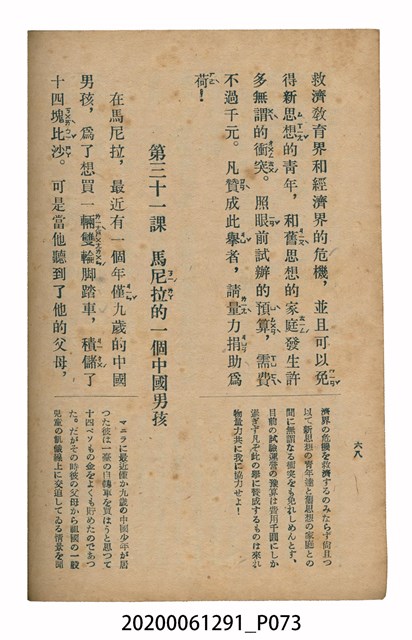 救濟教育界和經濟界的危機，並且可以免
得新思想的青年，和舊思想的家庭發生許
多無謂的衝突。照眼前試辦的預算，需費
不過千元。凡贊成此舉者，請量力捐助為
荷！
第三十一課　馬尼拉的一個中國男孩
在馬尼拉，最近有一個年僅九歲的中國
男孩，爲了想買一輛雙輪脚踏車，積儲了
十四塊比沙。可是當他聽到了他的父母，
六八
濟界の危機を救濟するのみならず尚且つ
以て新思想の青年達と舊思想の家庭との
間に無謂なる衝突をも免れしめんとす、
目前の試驗運營の豫算は費用千圓にしか
過ぎず凡そ此の擧に贊成するものは來れ
物量力共に我に協力せよ！
マニラに最近僅か九歲の中國少年が居
つた彼は一臺の自轉車を買はうと思つて
十四ペソもの金をよくも貯めたのであつ
た。だがその時彼の父母から祖國の一般
兒童の飢餓線上に交迫してゐる情景を聞
20200061291_P073